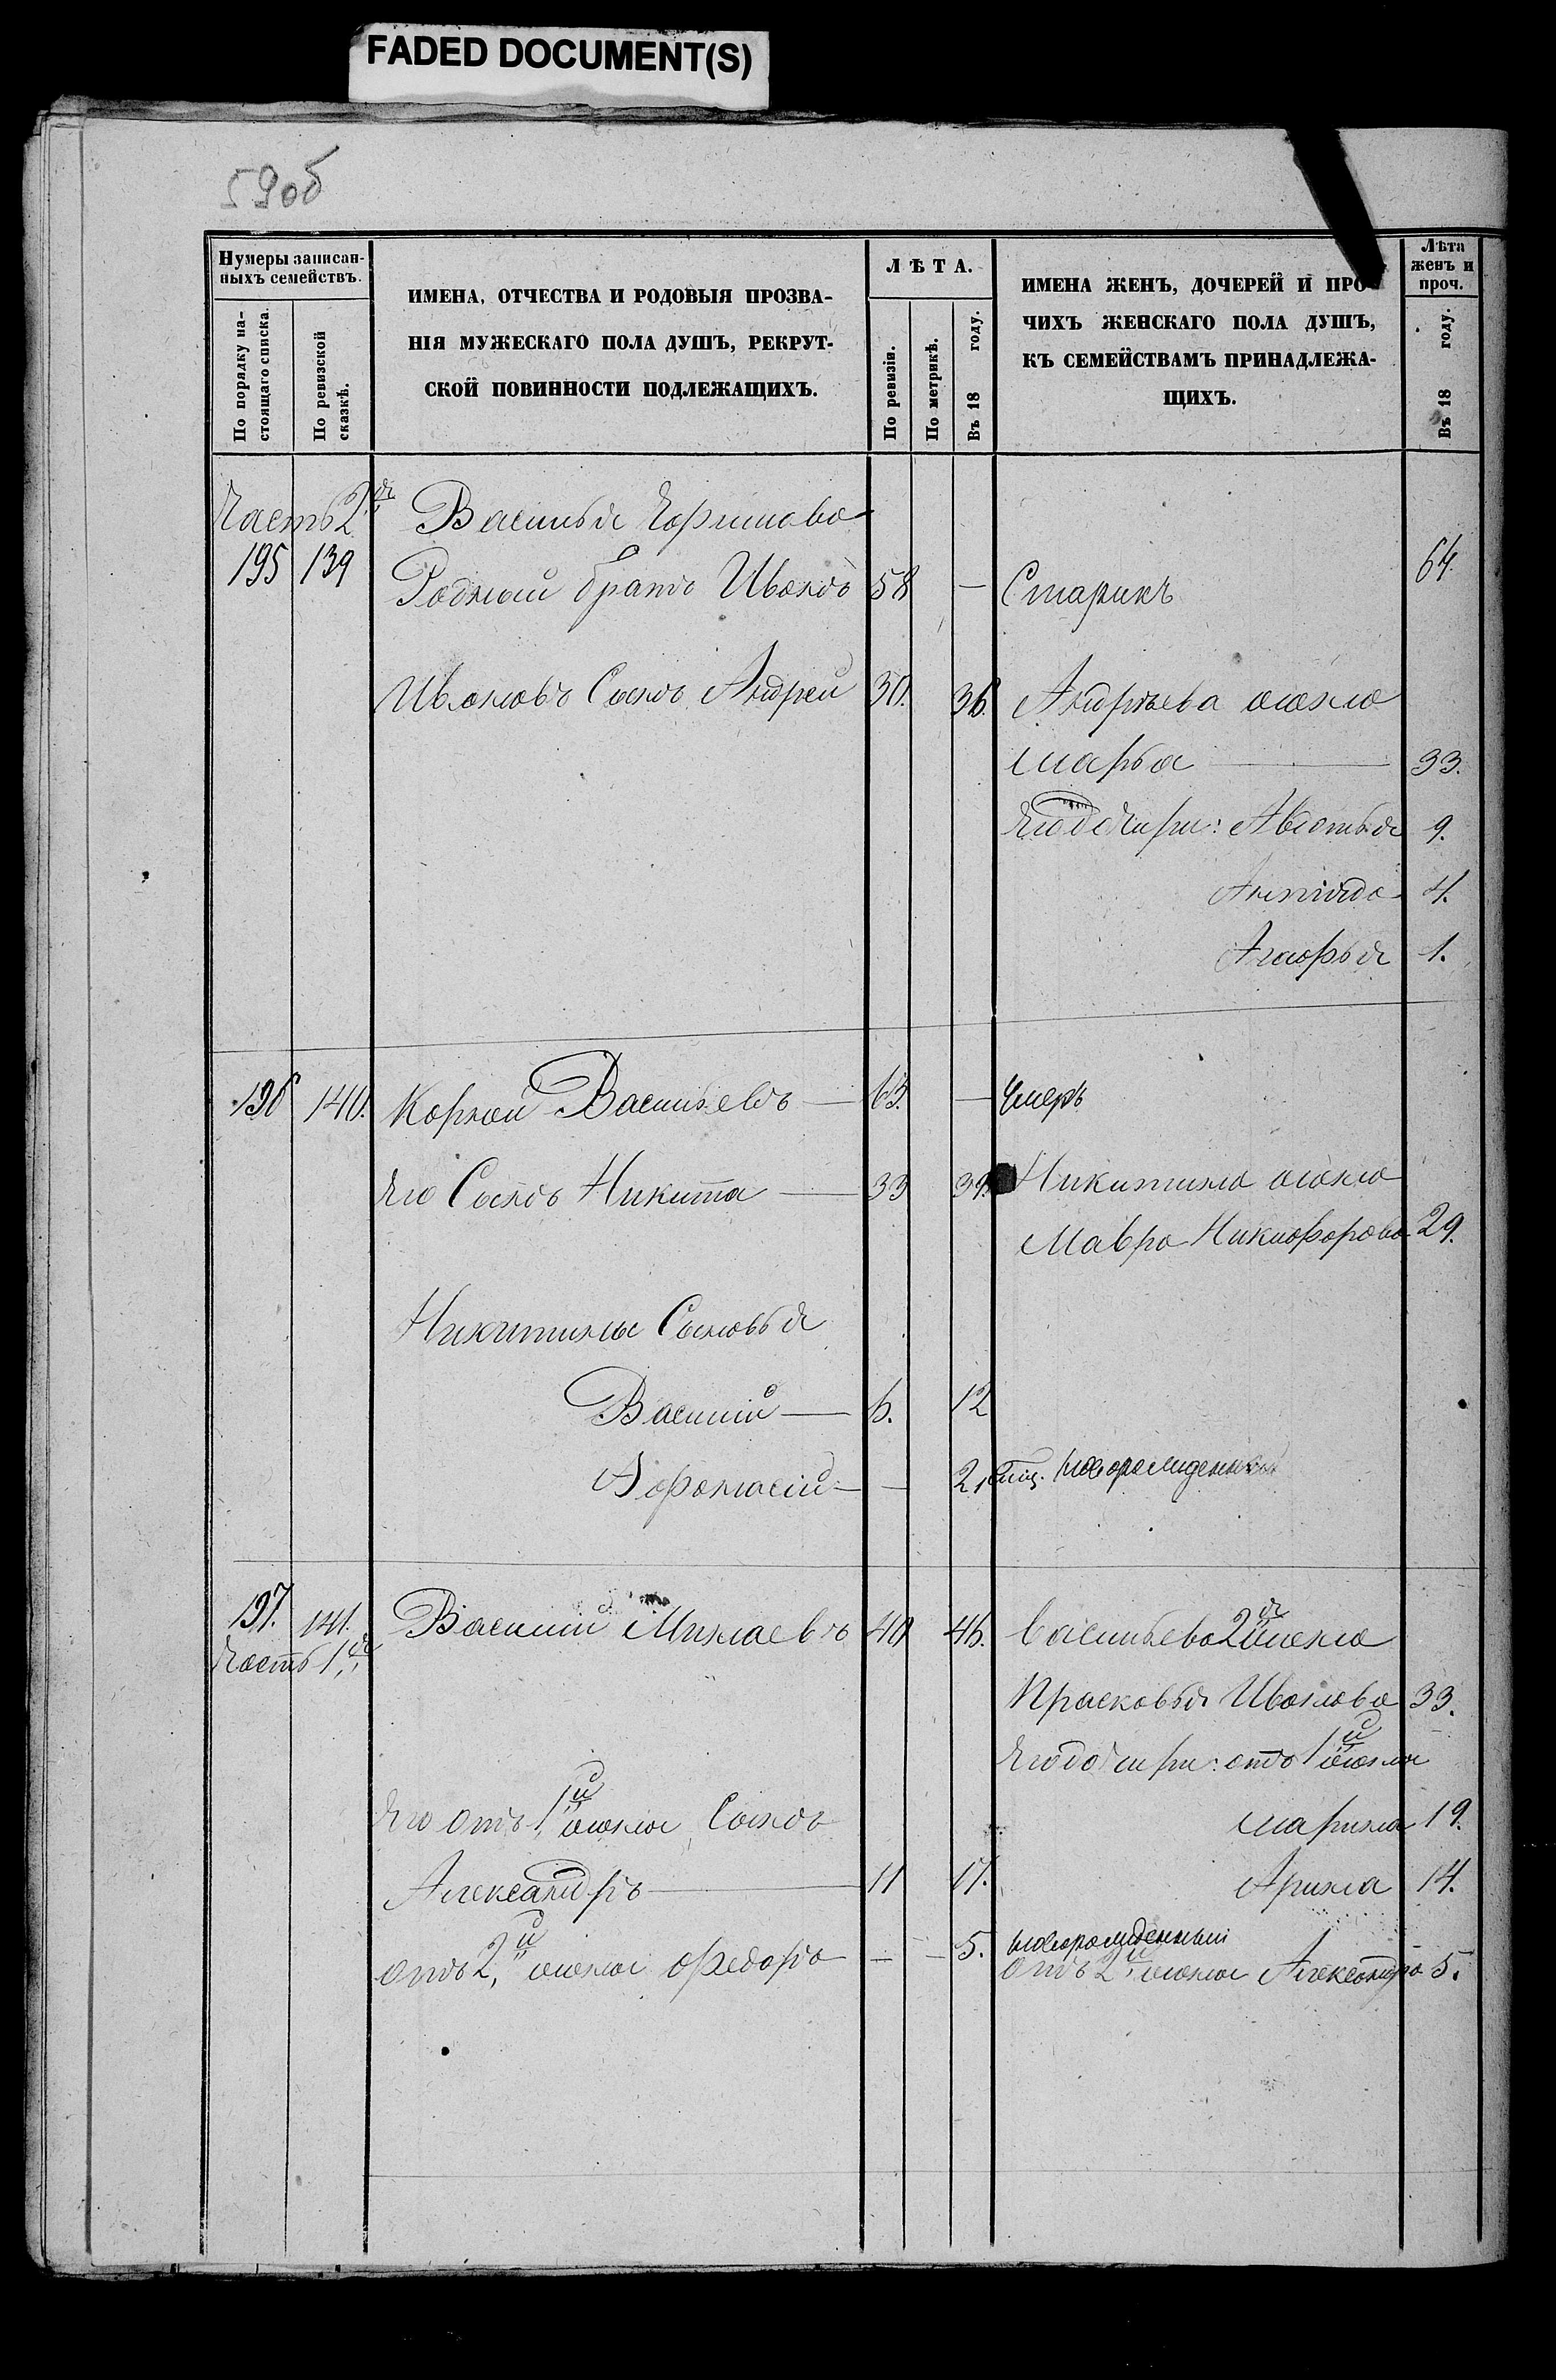 FADED DOCUMENT(S)
59об
Нумеры записан-
ныхъ семействъ.
По порядку на-
стоящаго списка.
По ревизской
сказкѣ.
ИМЕНА, ОТЧЕСТВА И РОДОВЫЯ ПРОЗВА-
НІЯ МУЖЕСКАГО ПОЛА ДУШЪ, РЕКРУТ-
СКОЙ ПОВИННОСТИ ПОДЛЕЖАЩИХЪ.
ЛѢТА.
По ревизіи.
По метрикѣ.
Въ 18 году.
ИМЕНА ЖЕНЪ, ДОЧЕРЕЙ И ПРО-
ЧИХЪ ЖЕНСКАГО ПОЛА ДУШЪ,
КЪ СЕМЕЙСТВАМЪ ПРИНАДЛЕЖА-
ЩИХЪ.
Лѣта
женъ и
проч.
Въ 18 году.
Часть 2я Василья
195 139 Родной братъ Иванъ 58 — Старикъ 64.
Ивановъ Сынъ Андрей 30. 36. Андрѣева жена
Марья 33.
Его дочери: Авдотья 9.
4.
Агафья 1.
196 140. Корнѣй Васильевъ — 63. — Умеръ
Его Сынъ Никита — 33 39. Никитина жена
Мавра Никифорова 29.
Никитины Сыновья
Василій — 6. 12
Афонасій — — 2, новорожденный
197. 141. Василій Минаевъ 40 46. Васильева 2я жена
Часть 1я
Прасковья Иванова 33.
Его дочери: отъ 1й жены
Его отъ 1й жены Сынъ Марина 19.
Александръ — 11 17. Арина 14.
новорожденный
отъ 2й жены Федоръ — — 5. отъ 2й жены Александра 5.